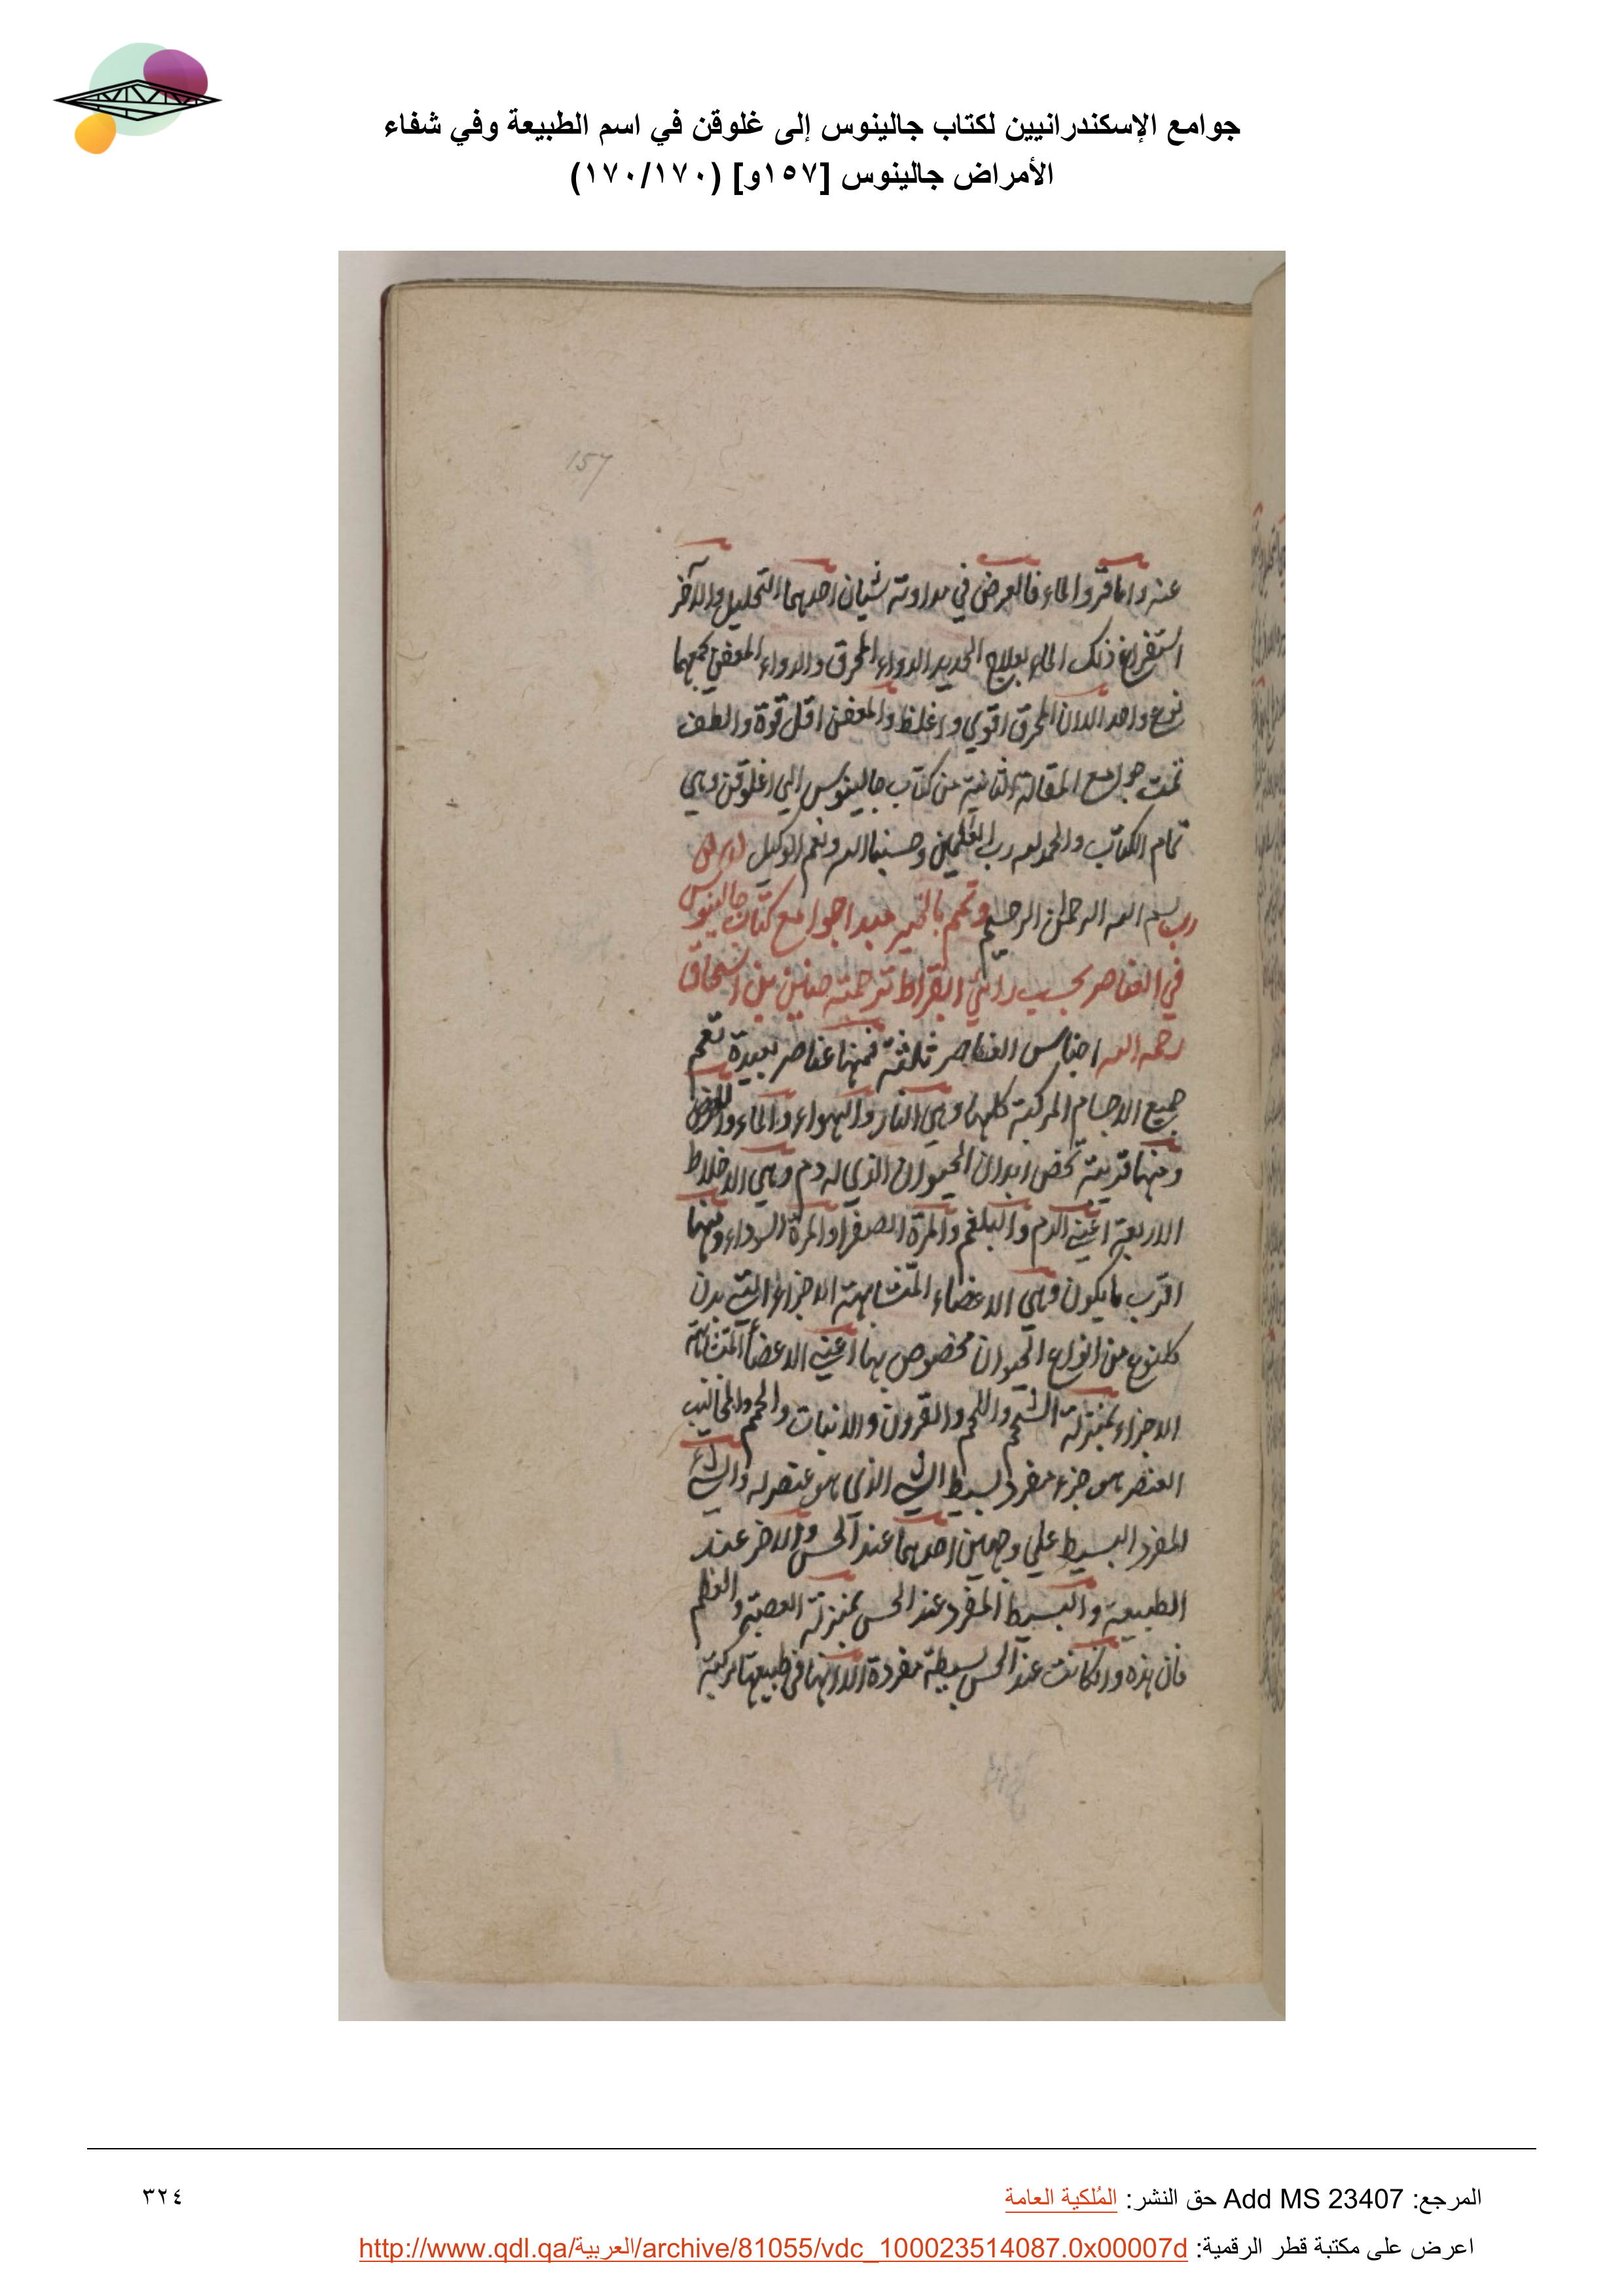 جوامع الإسكندرانيين لكتاب جالينوس إلى غلوقن في اسم الطبيعة وفي شفاء
الأمراض جالينوس [١٥٧و] (١٧٠/١٧٠)
157
عنه واما قروا الماء فالعرض في مداوته شيان احدهما التحليل والآخر
استفراغ ذلك الماء بعلاج الحديد الدواء المحرق والدواء المعفن
نوع واحد الا ان المحرق اقوي واغلظ والمعفن اقل قوة والطف
تمت جوامع المقالة الثانية من كتاب جالينوس الي اغلوقن وهي
تمام الكتاب والحمد لله رب العلمين وحسبنا الله ونعم الوكيل
رب بسم الله الرحمن الرحيم وتمم بالخير مبدا جوامع كتاب جالينوس
في العناصر بحسب راي ابقراط ترجمة حنين بن اسحاق
رحمه الله اجناس العناصر ثلثة فمنها عناصر بعيدة تعم
جميع الاجسام المركبة كلها وهي النار والهواء والماء والارض
ومنها قريبة تخص ابدان الحيوان الذي له دم وهي الاخلاط
الاربعة اعني الدم والبلغم والمرة الصفرا والمرة السوداء ومنها
اقرب ما يكون وهي الاعضاء المتشابهة الاجزاء التي بدن
كلنوع من انواع الحيوان مخصوص بها اعني الاعضأ المتشابهة
الاجزاء بمنزلة الشحم واللحم والقرون والانياب والمخاليب
العنصر هو جزء مفرد بسيط الشي الذي هو عنصر له والشي
المفرد البسيط علي وجهين احدهما عند الحس والاخر عند
الطبيعة والبسيط المفرد عند الحس بمنزلة العصبة والعظم
فان هذه وان كانت عند الحس بسيطة مفردة الا انها في طبيعتها مركبة
المرجع: Add MS 23407 حق النشر: المُلكية العامة
٣٢٤
اعرض على مكتبة قطر الرقمية: http://www.qdl.qa/العربية/archive/81055/vdc_100023514087.0x00007d